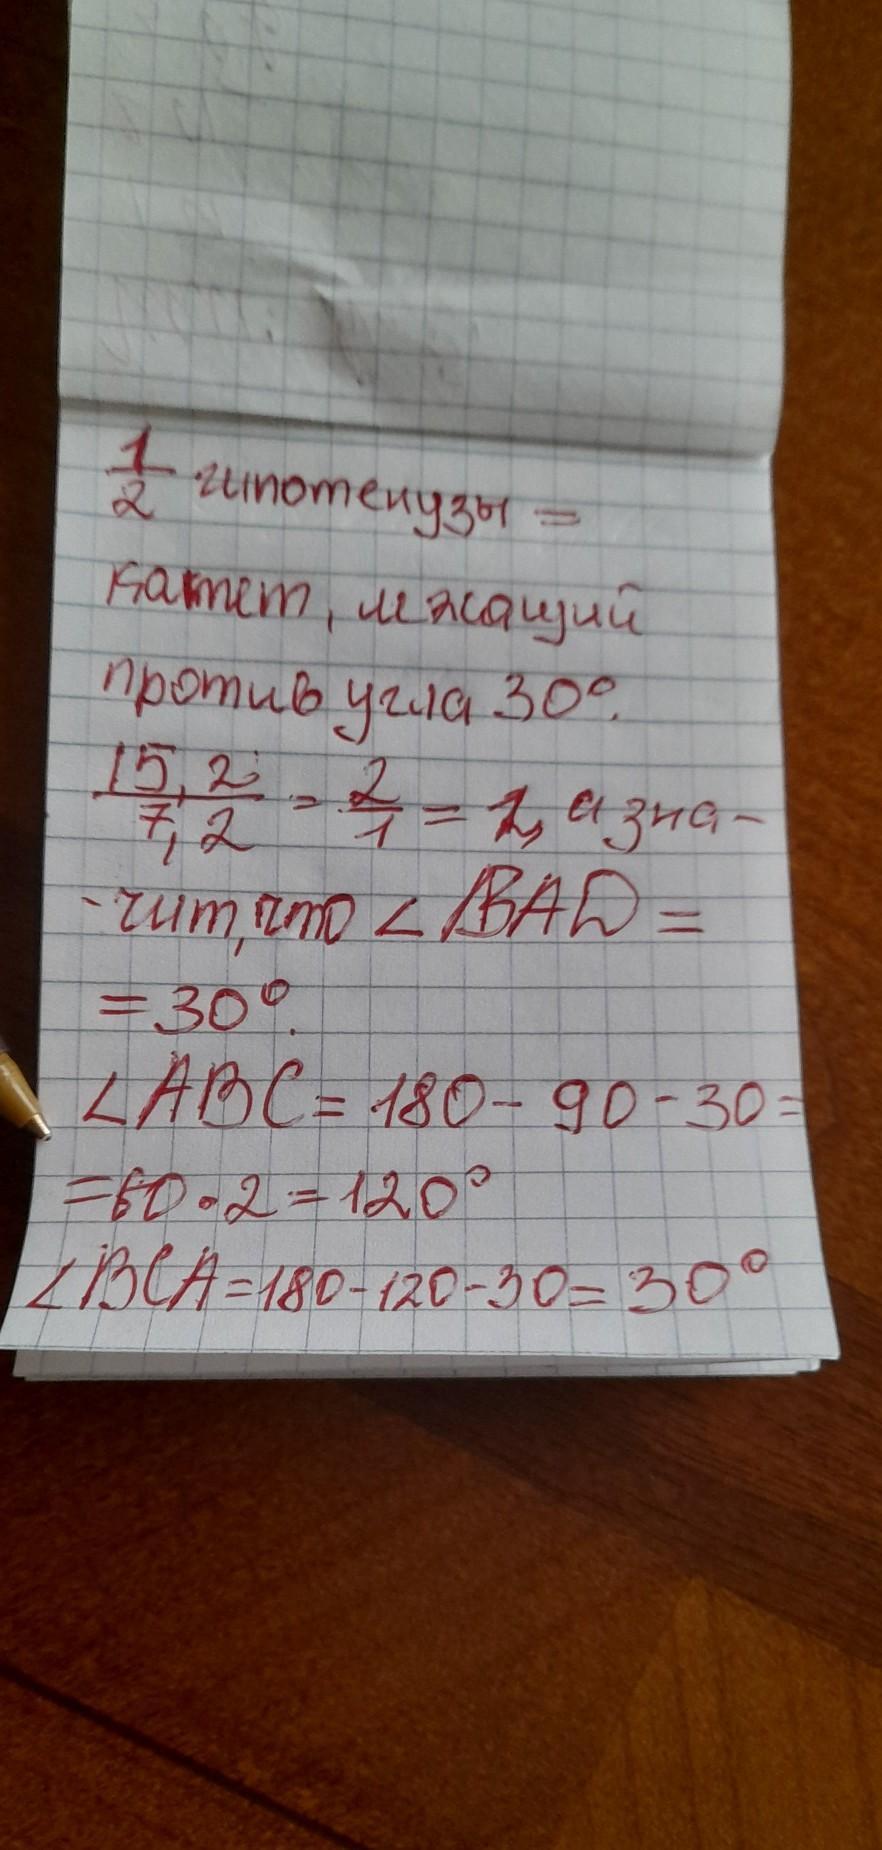 1/2 гипотенузы =
катет, лежащий
против угла 30°.
15,2/7,2 = 2/1 = 2, а зна-
-чит, что < BAD =
= 30°.
< ABC = 180 - 90 - 30 =
= 60 · 2 = 120°
< BCA = 180 - 120 - 30 = 30°